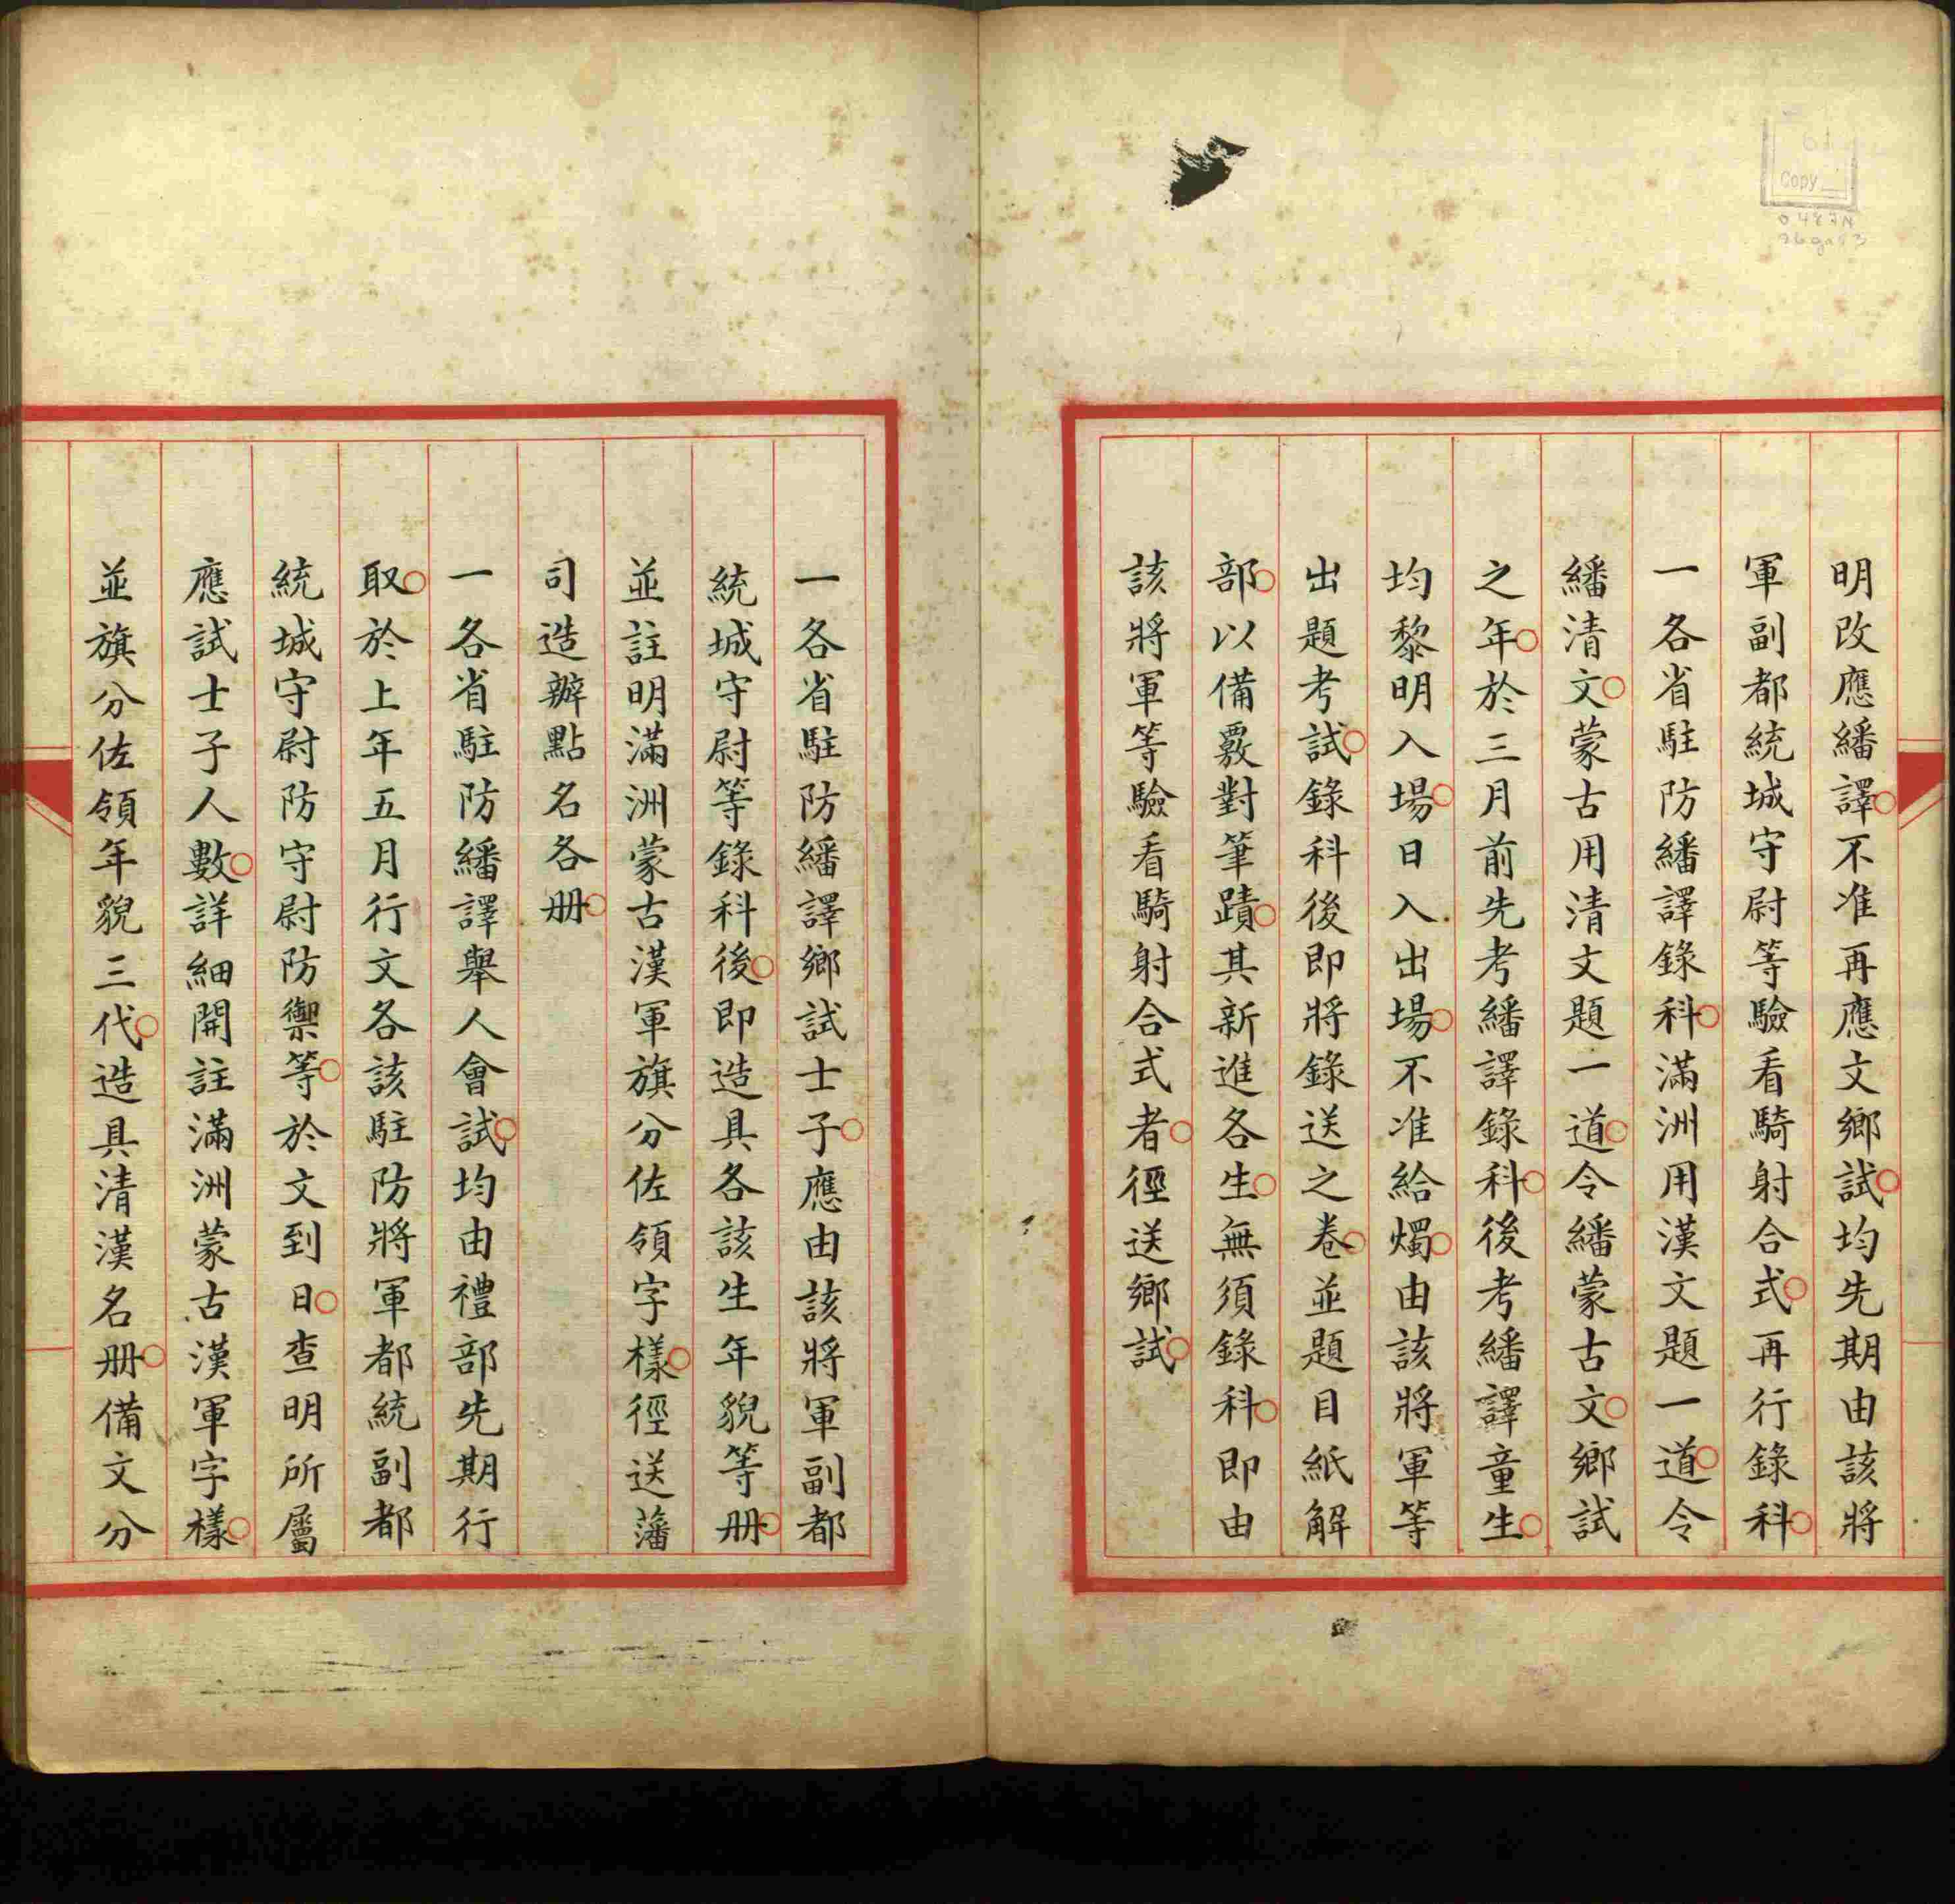 明改應繙譯○不准再應文鄉試○均先期由該將
軍副都統城守尉等驗看騎射合式○再行錄科○
一各省駐防繙譯錄科○滿洲用漢文題一道○令
繙清文○蒙古用清文題一道○令繙蒙古文○鄉試
之年○於三月前先考繙譯錄科○後考繙譯童生○
均黎明入場○日入出場○不准給燭○由該將軍等
出題考試○錄科後即將錄送之卷○並題目紙解
部○以備覈對筆蹟○其新進各生○無須錄科○即由
該將軍等驗看騎射合式者○徑送鄉試○
一各省駐防繙譯鄉試士子○應由該將軍副都
統城守尉等錄科後○即造具各該生年貌等冊○
並註明滿洲蒙古漢軍旗分佐領字樣○徑送藩
司造辦點名各冊○
一各省駐防繙譯舉人會試○均由禮部先期行
取○於上年五月行文各該駐防將軍都統副都
統城守尉防守尉防禦等○於文到日○查明所屬
應試士子人數○詳細開註滿洲蒙古漢軍字樣○
並旗分佐領年貌三代○造具清漢名冊○備文分
Copy